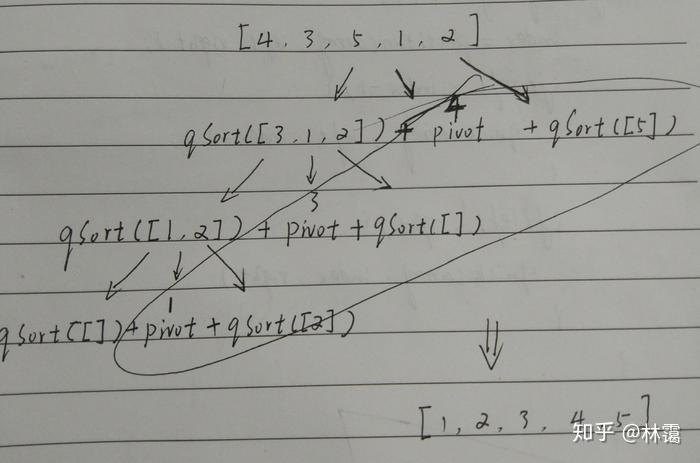 [4, 3, 5, 1, 2]
4
qSort([3,1,2]) + pivot + qSort([5])
3
qSort([1,2]) + pivot + qSort([])
1
qSort([]) + pivot + qSort([2])
[1, 2, 3, 4, 5]
知乎 @林霭